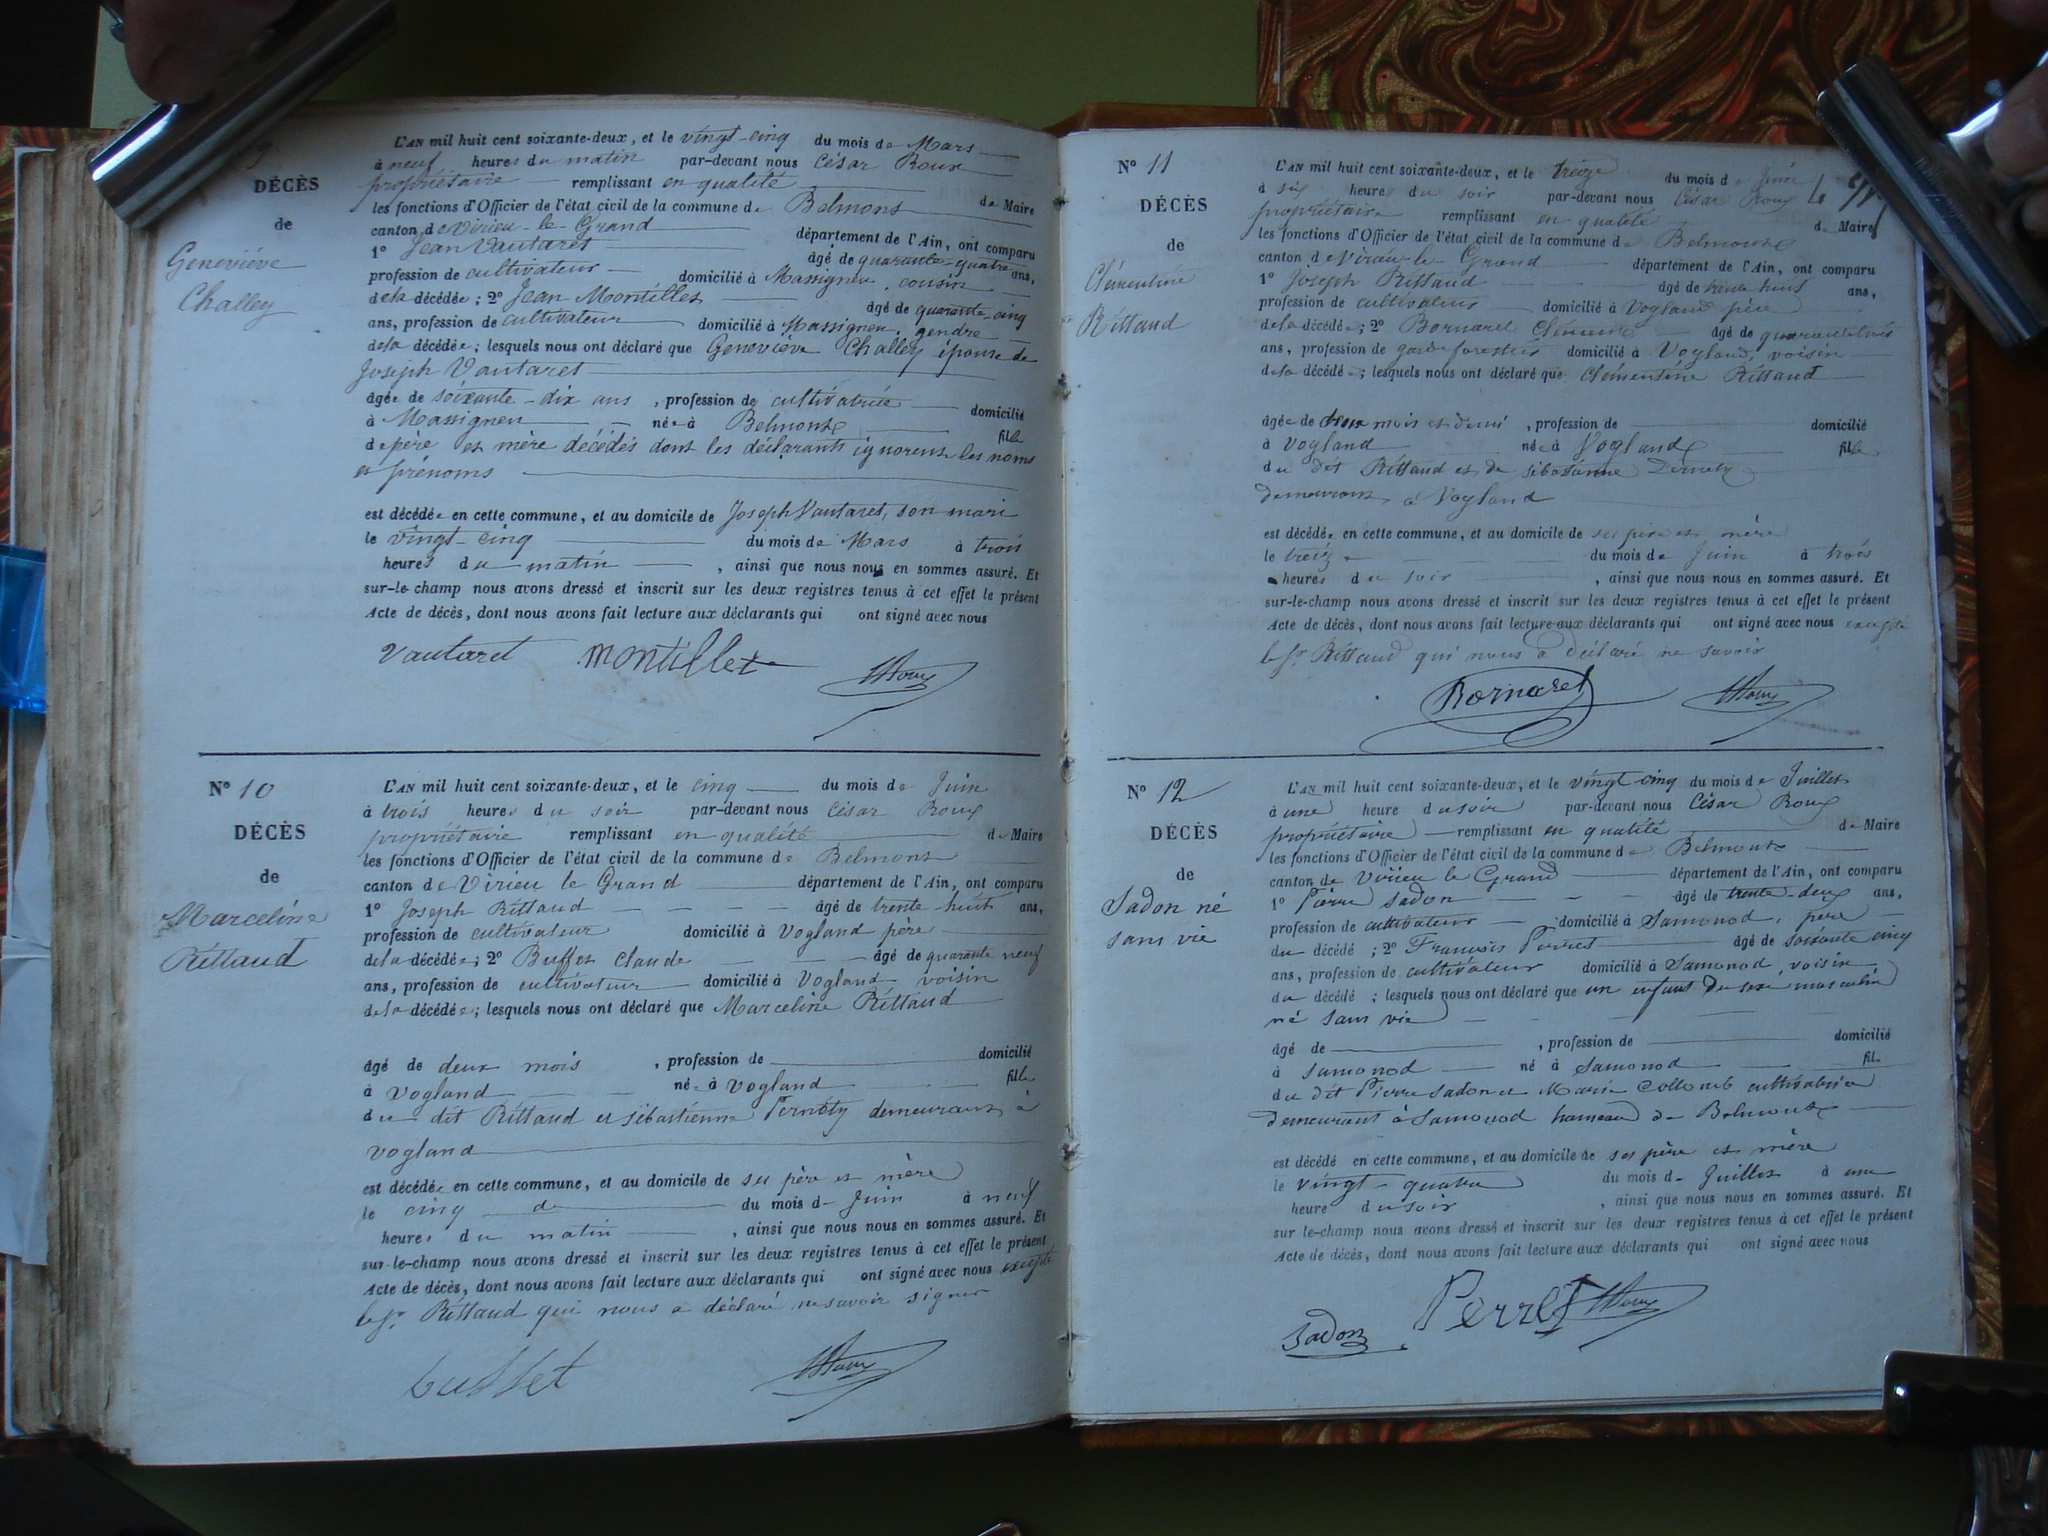 9
DÉCÈS
de
Geneviève
Challey
L'AN mil huit cent soixante-deux, et le vingt-cinq du mois de Mars
à neuf heures du matin par-devant nous César Roux
propriétaire remplissant en qualité de Maire
les fonctions d'Officier de l'état civil de la commune de Belmont
canton de Virieu-le-Grand département de l'Ain, ont comparu
1° Jean Vautaret âgé de quarante-quatre ans,
profession de cultivateur domicilié à Massignieu, cousin
de la décédée ; 2° Jean Montillet âgé de quarante-cinq
ans, profession de cultivateur domicilié à Massignieu, gendre
de la décédée ; lesquels nous ont déclaré que Geneviève Challey épouse de
Joseph Vautaret
âgée de soixante-dix ans , profession de cultivatrice domicilié
à Massignieu née à Belmont fille
de père et mère décédés dont les déclarants ignorent les noms
et prénoms
est décédée en cette commune, et au domicile de Joseph Vautaret, son mari
le vingt-cinq du mois de Mars à trois
heures du matin , ainsi que nous nous en sommes assuré. Et
sur-le-champ nous avons dressé et inscrit sur les deux registres tenus à cet effet le présent
Acte de décès, dont nous avons fait lecture aux déclarants qui ont signé avec nous
Vautaret Montillet Roux
N° 10
DÉCÈS
de
Marceline
Rittaud
L'AN mil huit cent soixante-deux, et le cinq du mois de Juin
à trois heures du soir par-devant nous César Roux
propriétaire remplissant en qualité de Maire
les fonctions d'Officier de l'état civil de la commune de Belmont
canton de Virieu le Grand département de l'Ain, ont comparu
1° Joseph Rittaud âgé de trente-huit ans,
profession de cultivateur domicilié à Vogland père
de la décédée ; 2° Buffet Claude âgé de quarante neuf
ans, profession de cultivateur domicilié à Vogland voisin
de la décédée ; lesquels nous ont déclaré que Marceline Rittaud
âgé de deux mois , profession de domicilié
à Vogland née à Vogland fille
du dit Rittaud et Sébastienne Pernoty demeurant à
Vogland
est décédée en cette commune, et au domicile de ses père et mère
le cinq de du mois de Juin à neuf
heures du matin , ainsi que nous nous en sommes assuré. Et
sur-le-champ nous avons dressé et inscrit sur les deux registres tenus à cet effet le présent
Acte de décès, dont nous avons fait lecture aux déclarants qui ont signé avec nous excepté
le Sr Rittaud qui nous a déclaré ne savoir signer
buffet Roux
N° 11
DÉCÈS
de
Clémentine
Rittaud
L'AN mil huit cent soixante-deux, et le treize du mois de Juin
à six heures du soir par-devant nous César Roux
propriétaire remplissant en qualité de Maire
les fonctions d'Officier de l'état civil de la commune de Belmont
canton de Virieu-le-Grand département de l'Ain, ont comparu
1° Joseph Rittaud âgé de trente huit ans,
profession de cultivateur domicilié à Vogland père
de la décédée ; 2° Bornarel Clément âgé de quarante trois
ans, profession de garde forestier domicilié à Vogland, voisin
de la décédée ; lesquels nous ont déclaré que Clémentine Rittaud
âgée de deux mois et demi , profession de domicilié
à Vogland née à Vogland fille
du dit Rittaud et de
demeurant à Vogland
est décédée en cette commune, et au domicile de ses père et mère
le treize du mois de Juin à trois
heures du soir , ainsi que nous nous en sommes assuré. Et
sur-le-champ nous avons dressé et inscrit sur les deux registres tenus à cet effet le présent
Acte de décès, dont nous avons fait lecture aux déclarants qui ont signé avec nous excepté
le Sr Rittaud qui nous a déclaré ne savoir
Bornarel Roux
N° 12
DÉCÈS
de
Sadon né
sans vie
L'AN mil huit cent soixante-deux, et le vingt-cinq du mois de Juillet
à une heure du soir par-devant nous César Roux
propriétaire remplissant en qualité de Maire
les fonctions d'Officier de l'état civil de la commune de Belmont
canton de Virieu le Grand département de l'Ain, ont comparu
1° Pierre Sadon âgé de trente-deux ans,
profession de cultivateur domicilié à Samonod, père
du décédé ; 2° François Perret âgé de soixante cinq
ans, profession de cultivateur domicilié à Samonod, voisin
du décédé ; lesquels nous ont déclaré que un enfant du sexe masculin
né sans vie
âgé de , profession de domicilié
à Samonod né à Samonod fil
du dit Pierre Sadon et Marie Collomb cultivatrice
demeurant à Samonod hameau de Belmont
est décédé en cette commune, et au domicile de ses père et mère
le vingt-quatre du mois de Juillet à une
heure du soir , ainsi que nous nous en sommes assuré. Et
sur le-champ nous avons dressé et inscrit sur les deux registres tenus à cet effet le présent
Acte de décès, dont nous avons fait lecture aux déclarants qui ont signé avec nous
Sadon Perret Roux